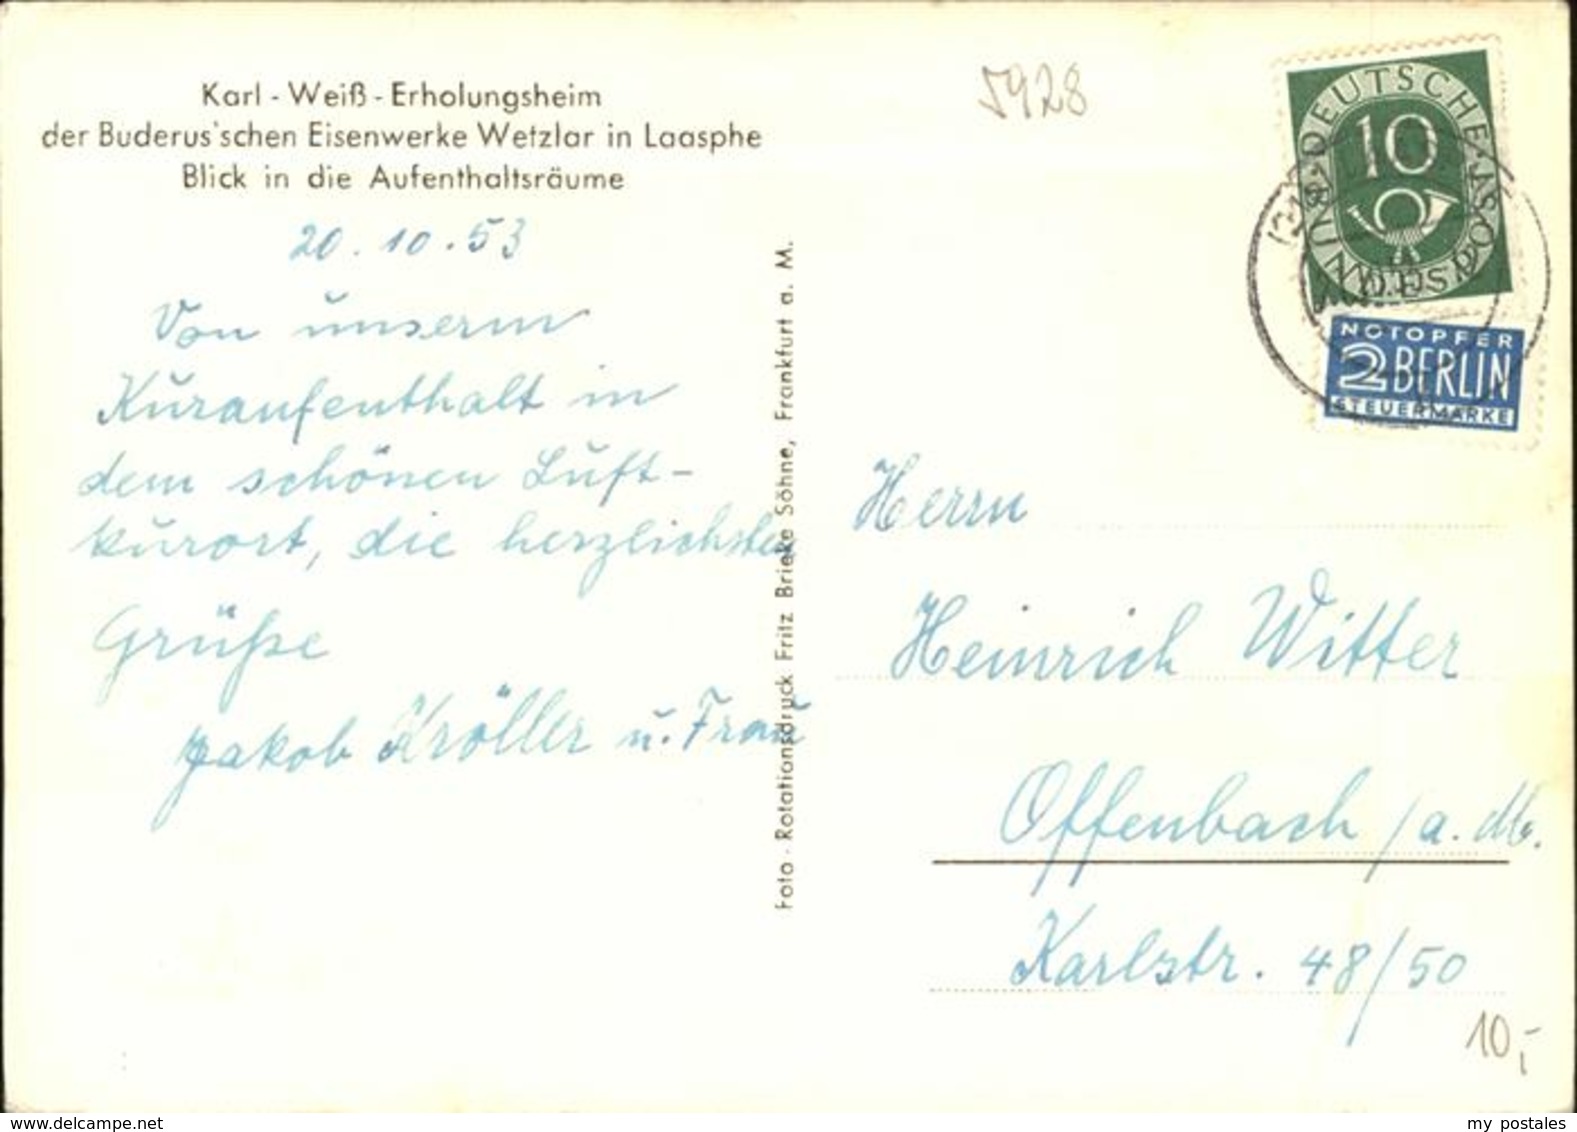 Karl - Weiß - Erholungsheim
der Buderus'schen Eisenwerke Wetzlar in Laasphe
Blick in die Aufenthaltsräume
20. 10. 53
Von unserm
Kuraufenthalt in
dem schönen Luft-
kurort, die herzlichsten
Grüße
Jakob Kröller u. Frau
Foto - Rotationsdruck Fritz Brieke Söhne, Frankfurt a. M.
5928
DEUTSCHE BUNDESPOST
10
NOTOPFER
2 BERLIN
STEUERMARKE
Herrn
Heinrich Witter
Offenbach / a. M.
Karlstr. 48/50
10,-
www.delcampe.net
my postales